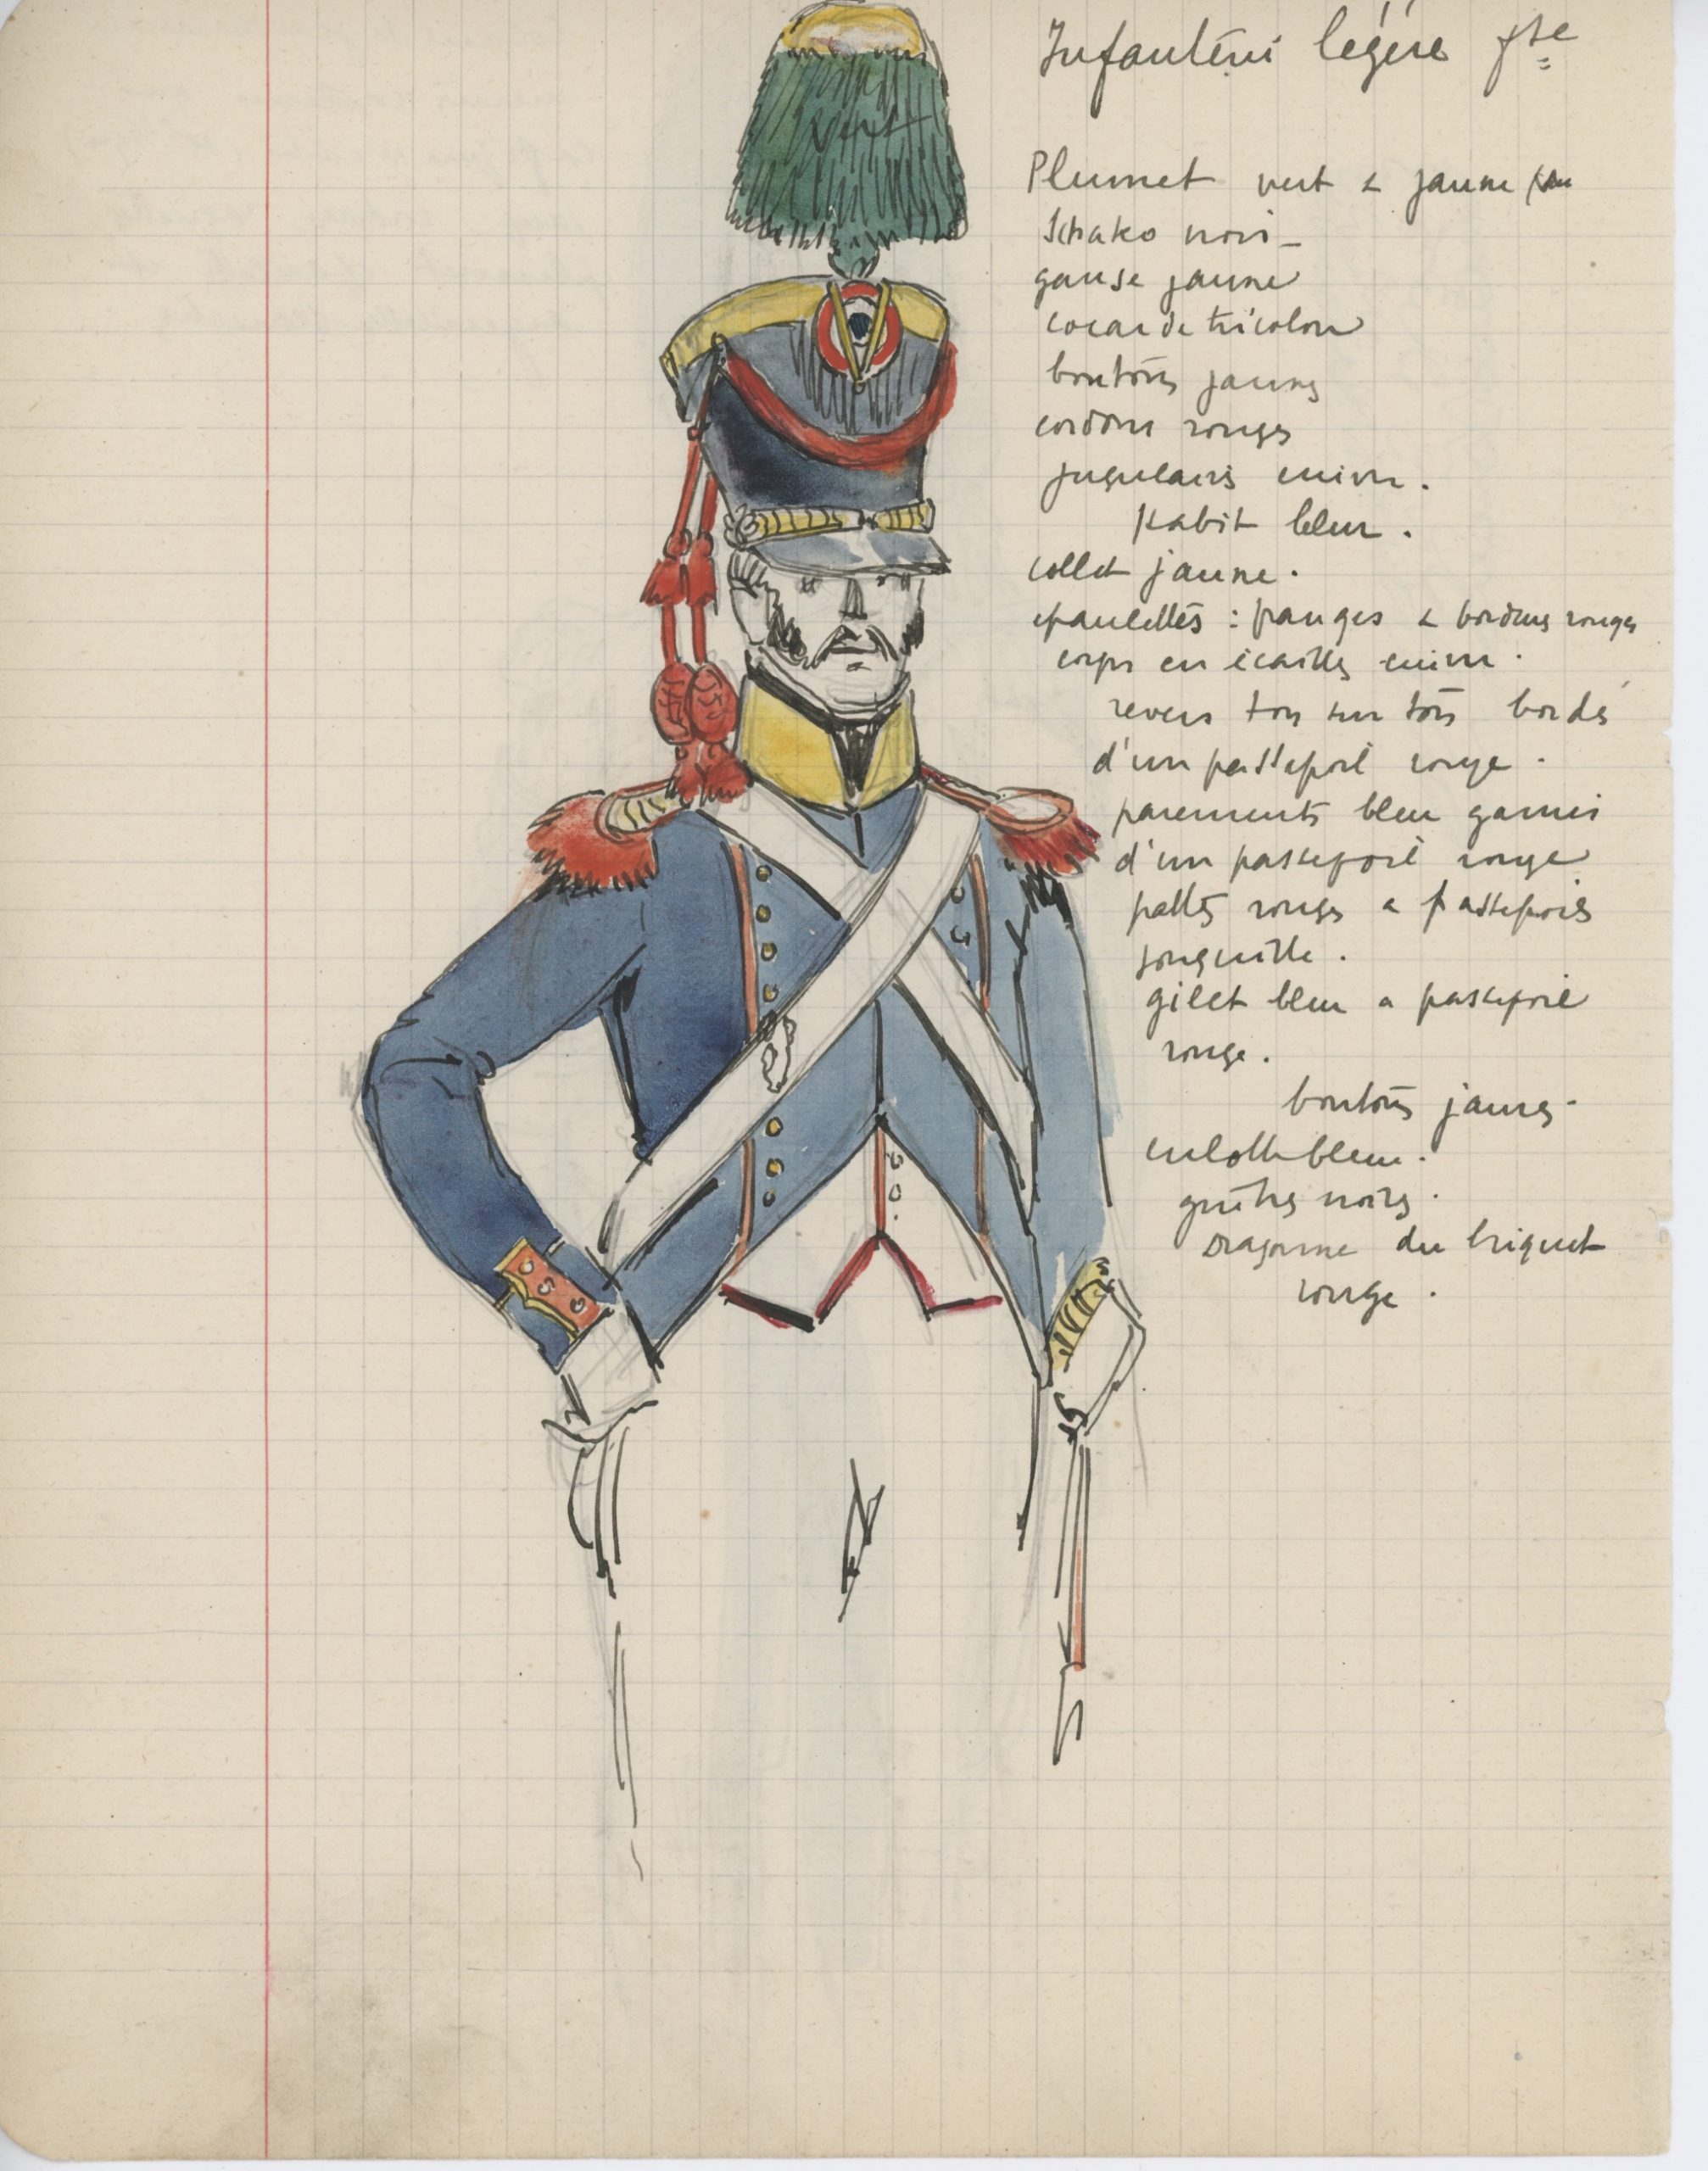 Infanterie légère fse
vert
Plumet vert & jaune
Schako noir -
ganse jaune
cocarde tricolore
boutons jaunes
cordons rouges
jugulaires cuivre.
habit bleu.
collet jaune.
epaulettes : franges & bordures rouges
corps en écailles cuivre.
revers ton sur ton bordés
d'un passepoil rouge.
parements bleu garnis
d'un passepoil rouge
pattes rouges a passepoils
jonquille.
gilet bleu a passepoil
rouge.
boutons jaunes.
culotte bleue.
guêtres noires.
Dragonne du briquet
rouge.